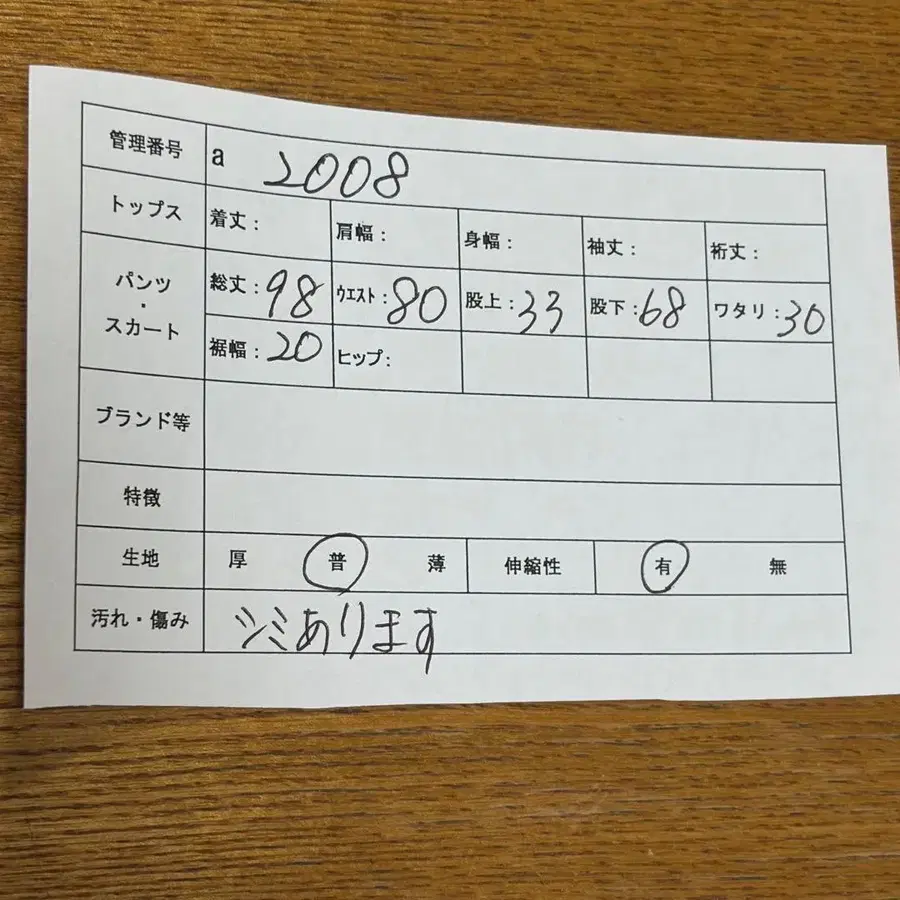 管理番号 a 2008
トップス 着丈： 肩幅： 身幅： 袖丈： 裄丈：
パンツ・スカート 総丈：98 ウエスト：80 股上：33 股下：68 ワタリ：30
裾幅：20 ヒップ：
ブランド等
特徴
生地 厚 普 薄 伸縮性 有 無
汚れ・傷み シミあります